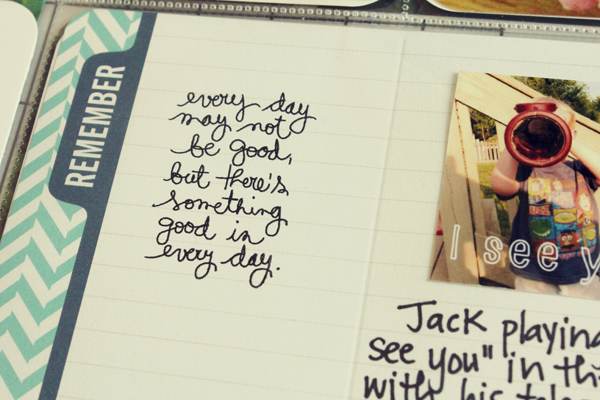 REMEMBER
every day
may not
be good,
but there's
something
good in
every day.
I see
Jack playing
see you" in
with his